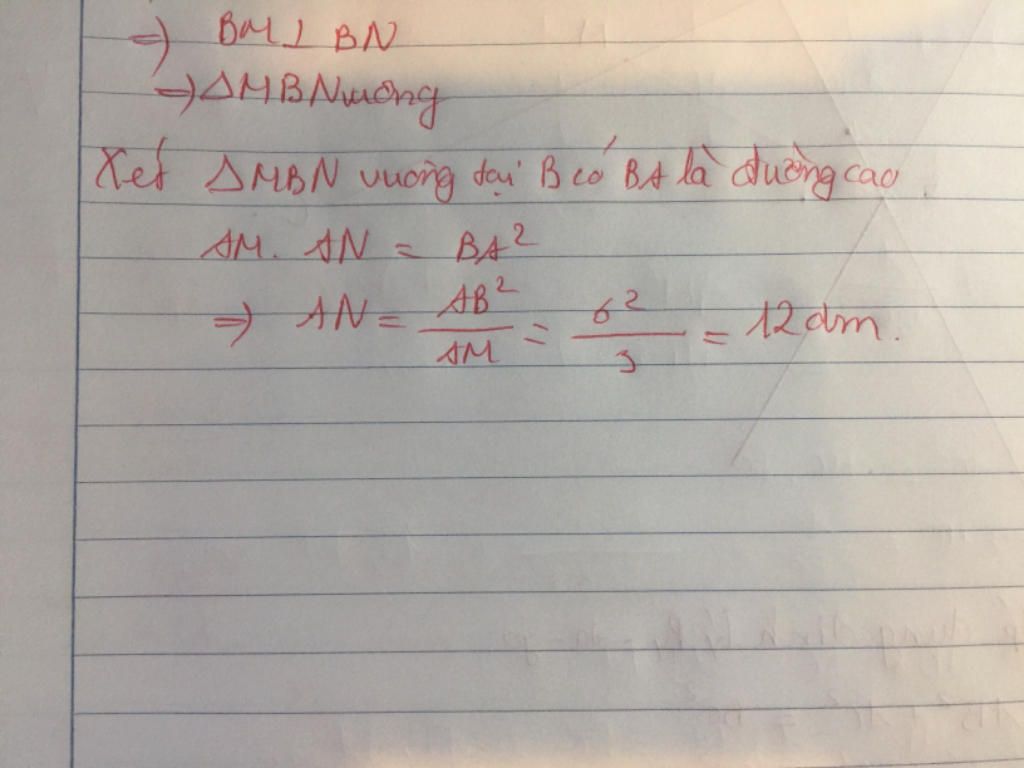 => BM ⊥ BN
=> ΔMBN vuông
Xét ΔMBN vuông tại B có BA là đường cao
AM. AN = BA²
=> AN = AB²/AM = 6²/3 = 12 dm.